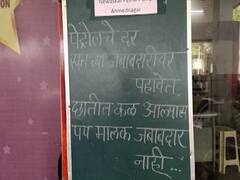 Ahmednagar
पेट्रोलचे दर
स्वतःच्या जबाबदारीवर
पहावेत.
छातीत कळ आल्यास
पंप मालक जबाबदार
नाही...